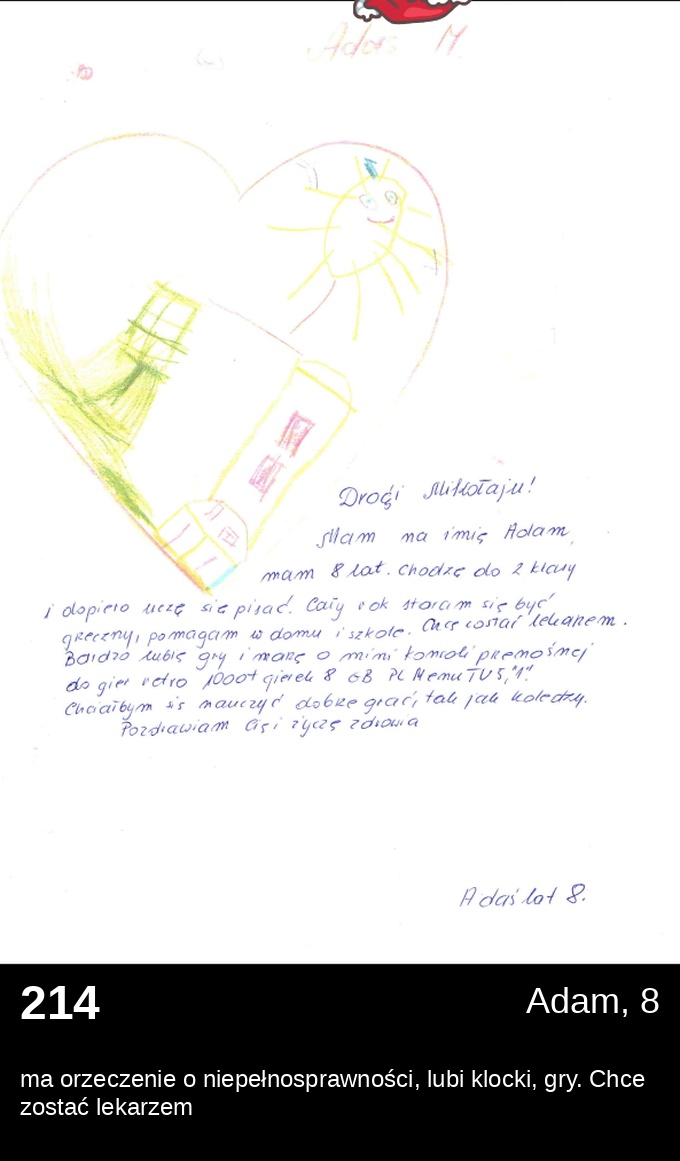 Adaś M.
Drogi Mikołaju!
Mam na imię Adam,
mam 8 lat. Chodzę do 2 klasy
i dopiero uczę się pisać. Cały rok staram się być
grzeczny, pomagam w domu i szkole. Chcę zostać lekarzem.
Bardzo lubię gry i marzę o mini konsoli przenośnej
do gier retro 1000+ gierek 8 GB PL Menu TV 5,"1".
Chciałbym się nauczyć dobrze grać, tak jak koledzy.
Pozdrawiam Cię i życzę zdrowia
Adaś lat 8.
214
Adam, 8
ma orzeczenie o niepełnosprawności, lubi klocki, gry. Chce
zostać lekarzem